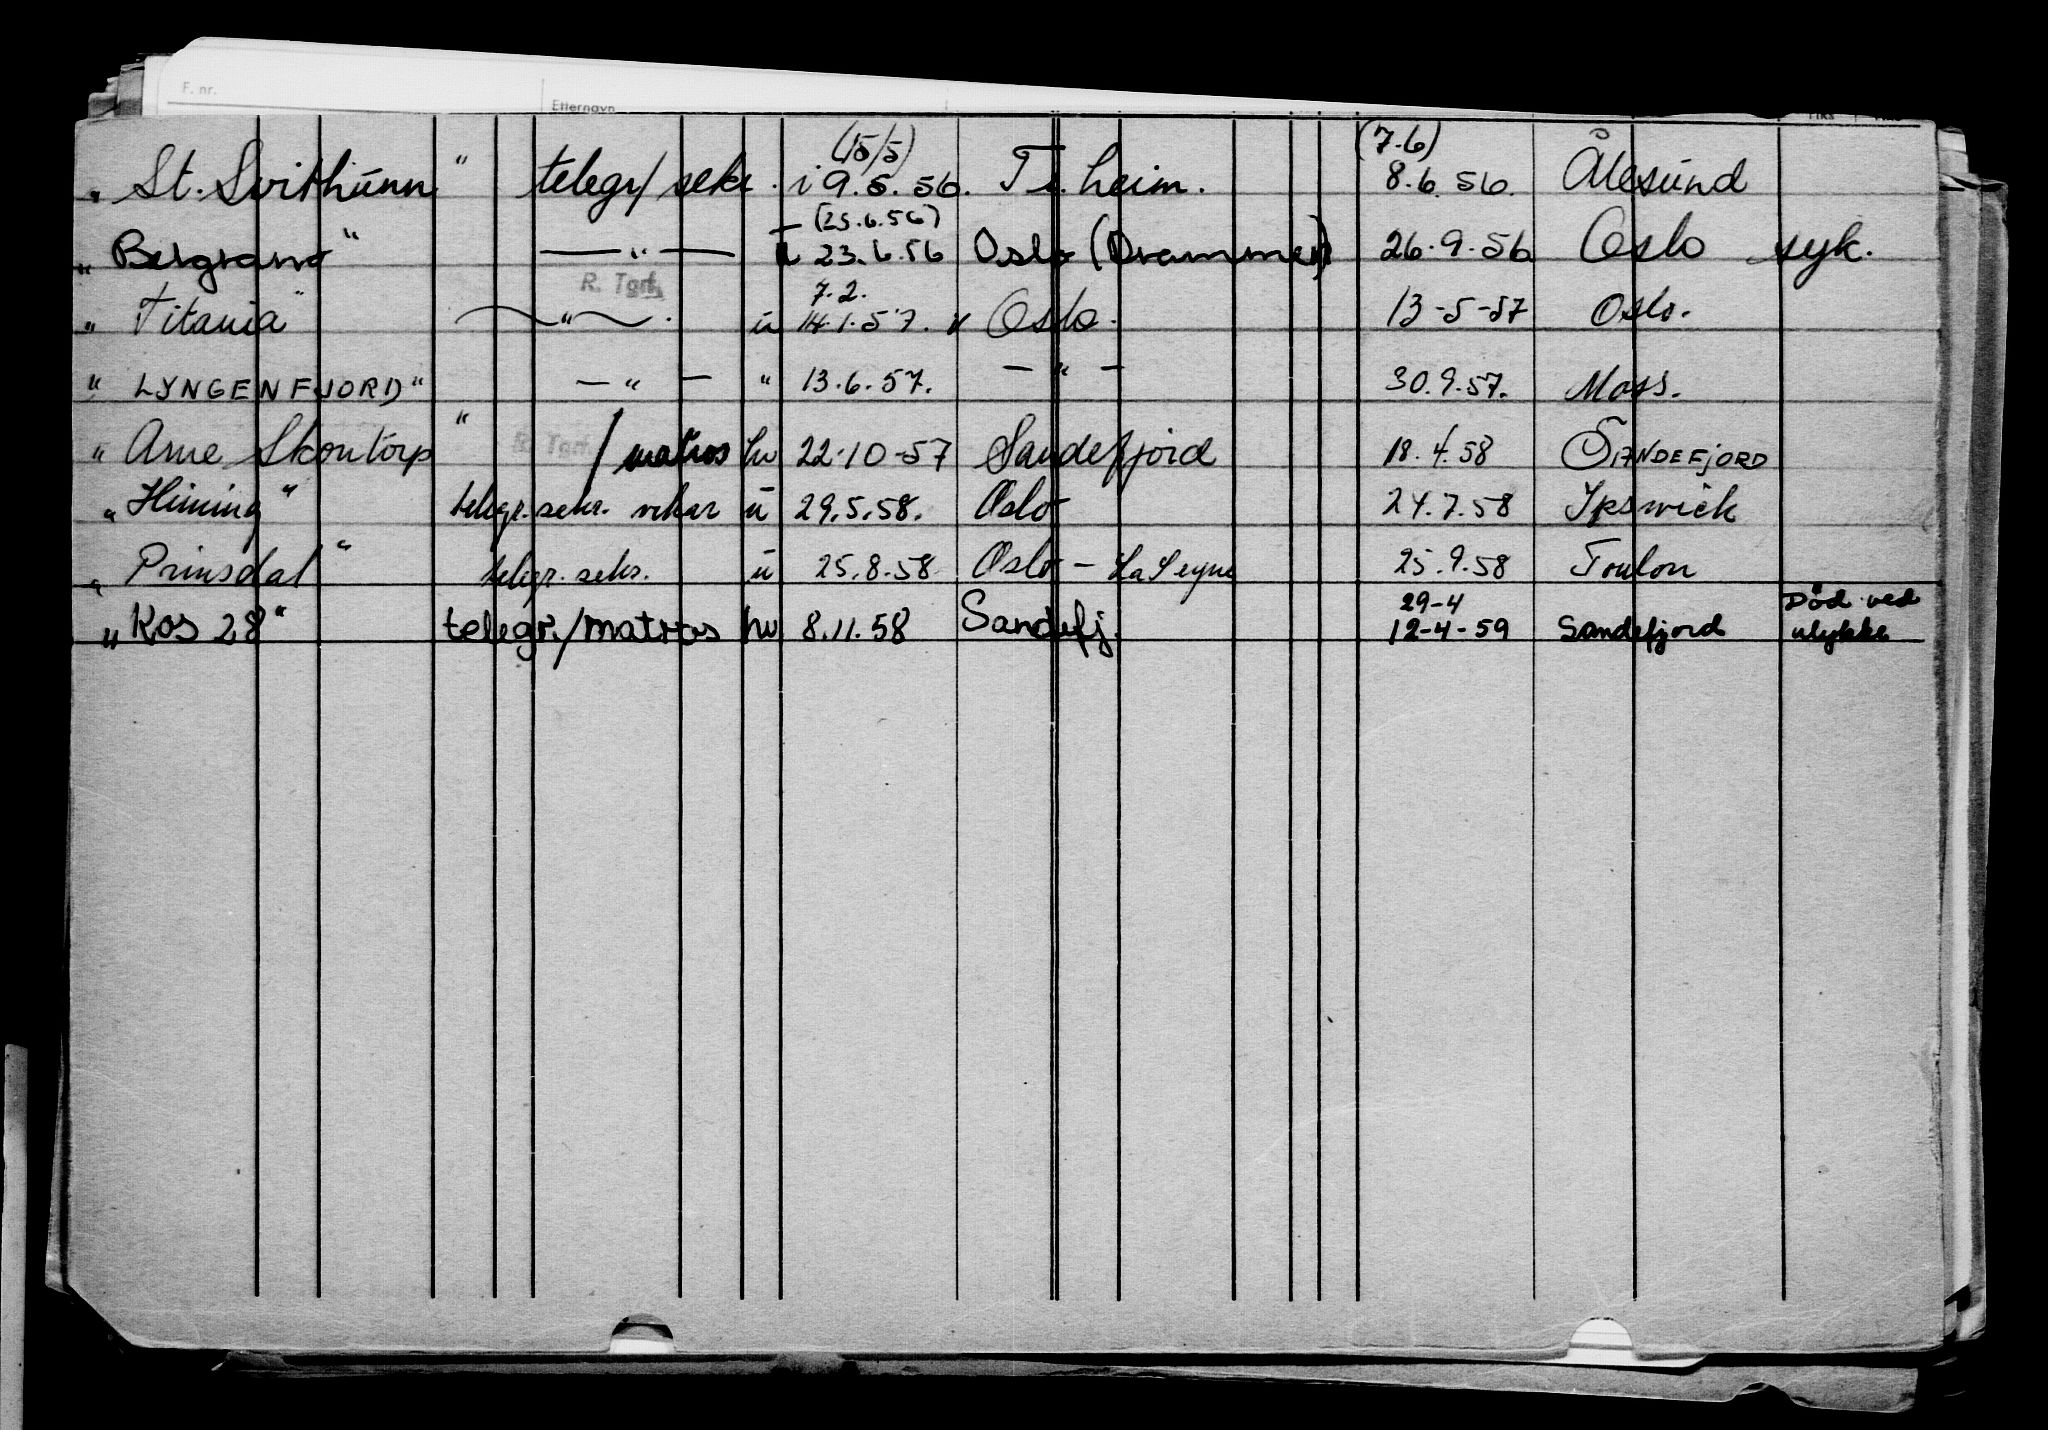 F. nr. Etternavn
(15/5) (7.6)
„ St. Svithunn " telegr/sekr. i 9.5.56. Tr.heim. 8.6.56. Ålesund
(25.6.56)
„ Belgrano" — " — u 23.6.56 Oslo (Drammen) 26.9.56 Oslo syk.
R. Tgrf. 7.2.
„ Titania" — " — u 14.1.57. v Oslo. 13-5-57 Oslo.
" LYNGENFJORD" — " — " 13.6.57. — " — 30.9.57. Moss.
" Arne Skontorp " R. Tgrf. / matros hv 22-10-57 Sandefjord 18.4.58 SANDEFJORD
„ Himing" telegr. sekr. vikar u 29.5.58. Oslo 24.7.58 Ipswich
„ Prinsdal" telegr. sekr. u 25.8.58 Oslo - La Seyne 25.9.58 Toulon
29-4 Død ved
„ Kos 28" telegr./matros hv 8.11.58 Sandefj. 12-4-59 Sandefjord ulykke